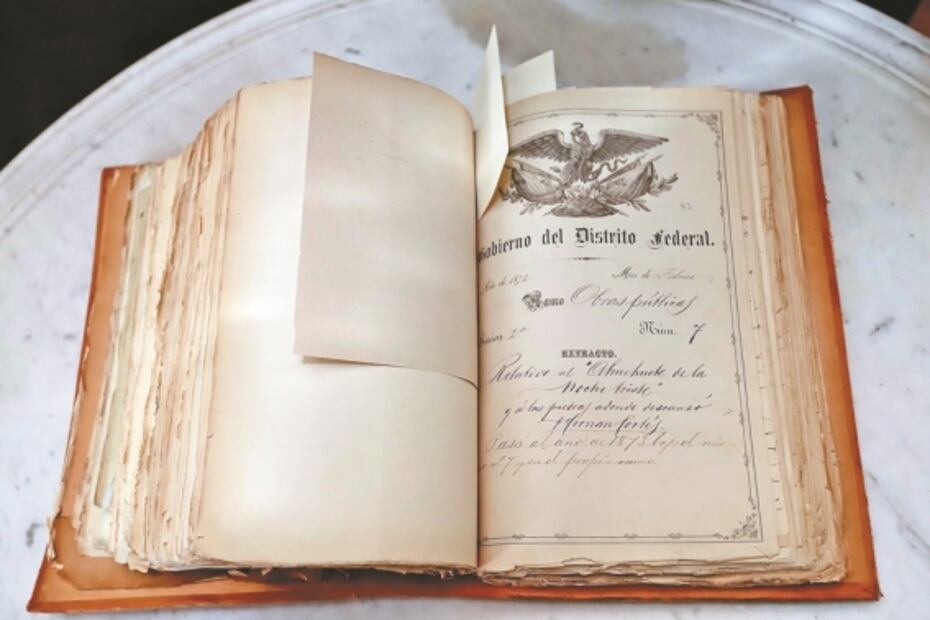 87
Gobierno del Distrito Federal.
Año de 1872 Mes de Febrero
Ramo Obras públicas
Seccion 2ª Núm. 7
EXTRACTO.
Relativo al "Ahuehuete de la
Noche triste"
y á las piedras adonde descansó
Hernan Cortés.
Pasó al año de 1873 bajo el
27 y en el propio ramo